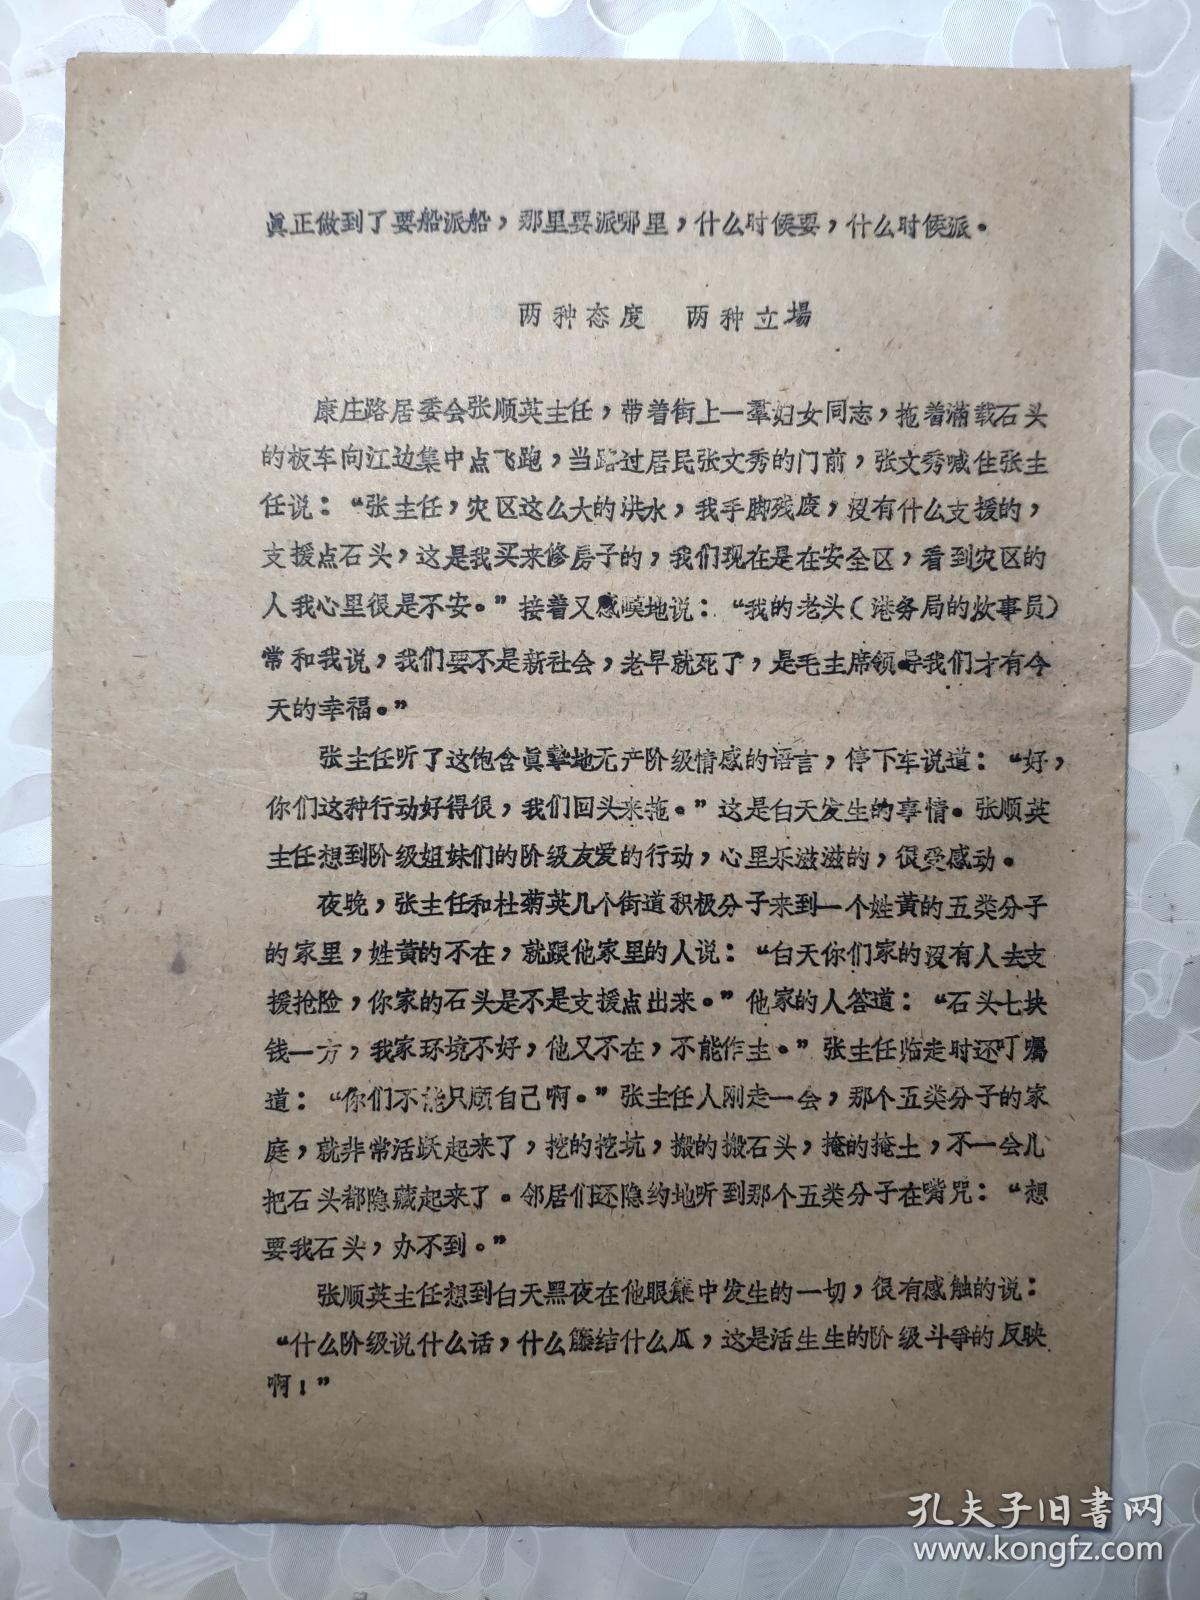 眞正做到了要船派船，那里要派哪里，什么时候要，什么时候派。
两种态度 两种立場
康庄路居委会张顺英主任，带着街上一羣妇女同志，拖着满载石头
的板车向江边集中点飞跑，当路过居民张文秀的门前，张文秀喊住张主
任说：“张主任，灾区这么大的洪水，我手脚残废，没有什么支援的，
支援点石头，这是我买来修房子的，我们现在是在安全区，看到灾区的
人我心里很是不安。”接着又感嘆地说：“我的老头（港务局的炊事员）
常和我说，我们要不是新社会，老早就死了，是毛主席领导我们才有今
天的幸福。”
张主任听了这饱含眞摯地无产阶级情感的语言，停下车说道：“好，
你们这种行动好得很，我们回头来拖。”这是白天发生的事情。张顺英
主任想到阶级姐妹们的阶级友爱的行动，心里乐滋滋的，很受感动。
夜晚，张主任和杜菊英几个街道积极分子来到一个姓黄的五类分子
的家里，姓黄的不在，就跟他家里的人说：“白天你们家的沒有人去支
援抢险，你家的石头是不是支援点出来。”他家的人答道：“石头七块
钱一方，我家环境不好，他又不在，不能作主。”张主任临走时还叮嘱
道：“你们不能只顾自己啊。”张主任人刚走一会，那个五类分子的家
庭，就非常活跃起来了，挖的挖坑，搬的搬石头，掩的掩土，不一会儿
把石头都隐藏起来了。邻居们还隐约地听到那个五类分子在嘴咒：“想
要我石头，办不到。”
张顺英主任想到白天黑夜在他眼簾中发生的一切，很有感触的说：
“什么阶级说什么话，什么籐结什么瓜，这是活生生的阶级斗争的反映
啊！”
孔夫子旧書网
www.kongfz.com